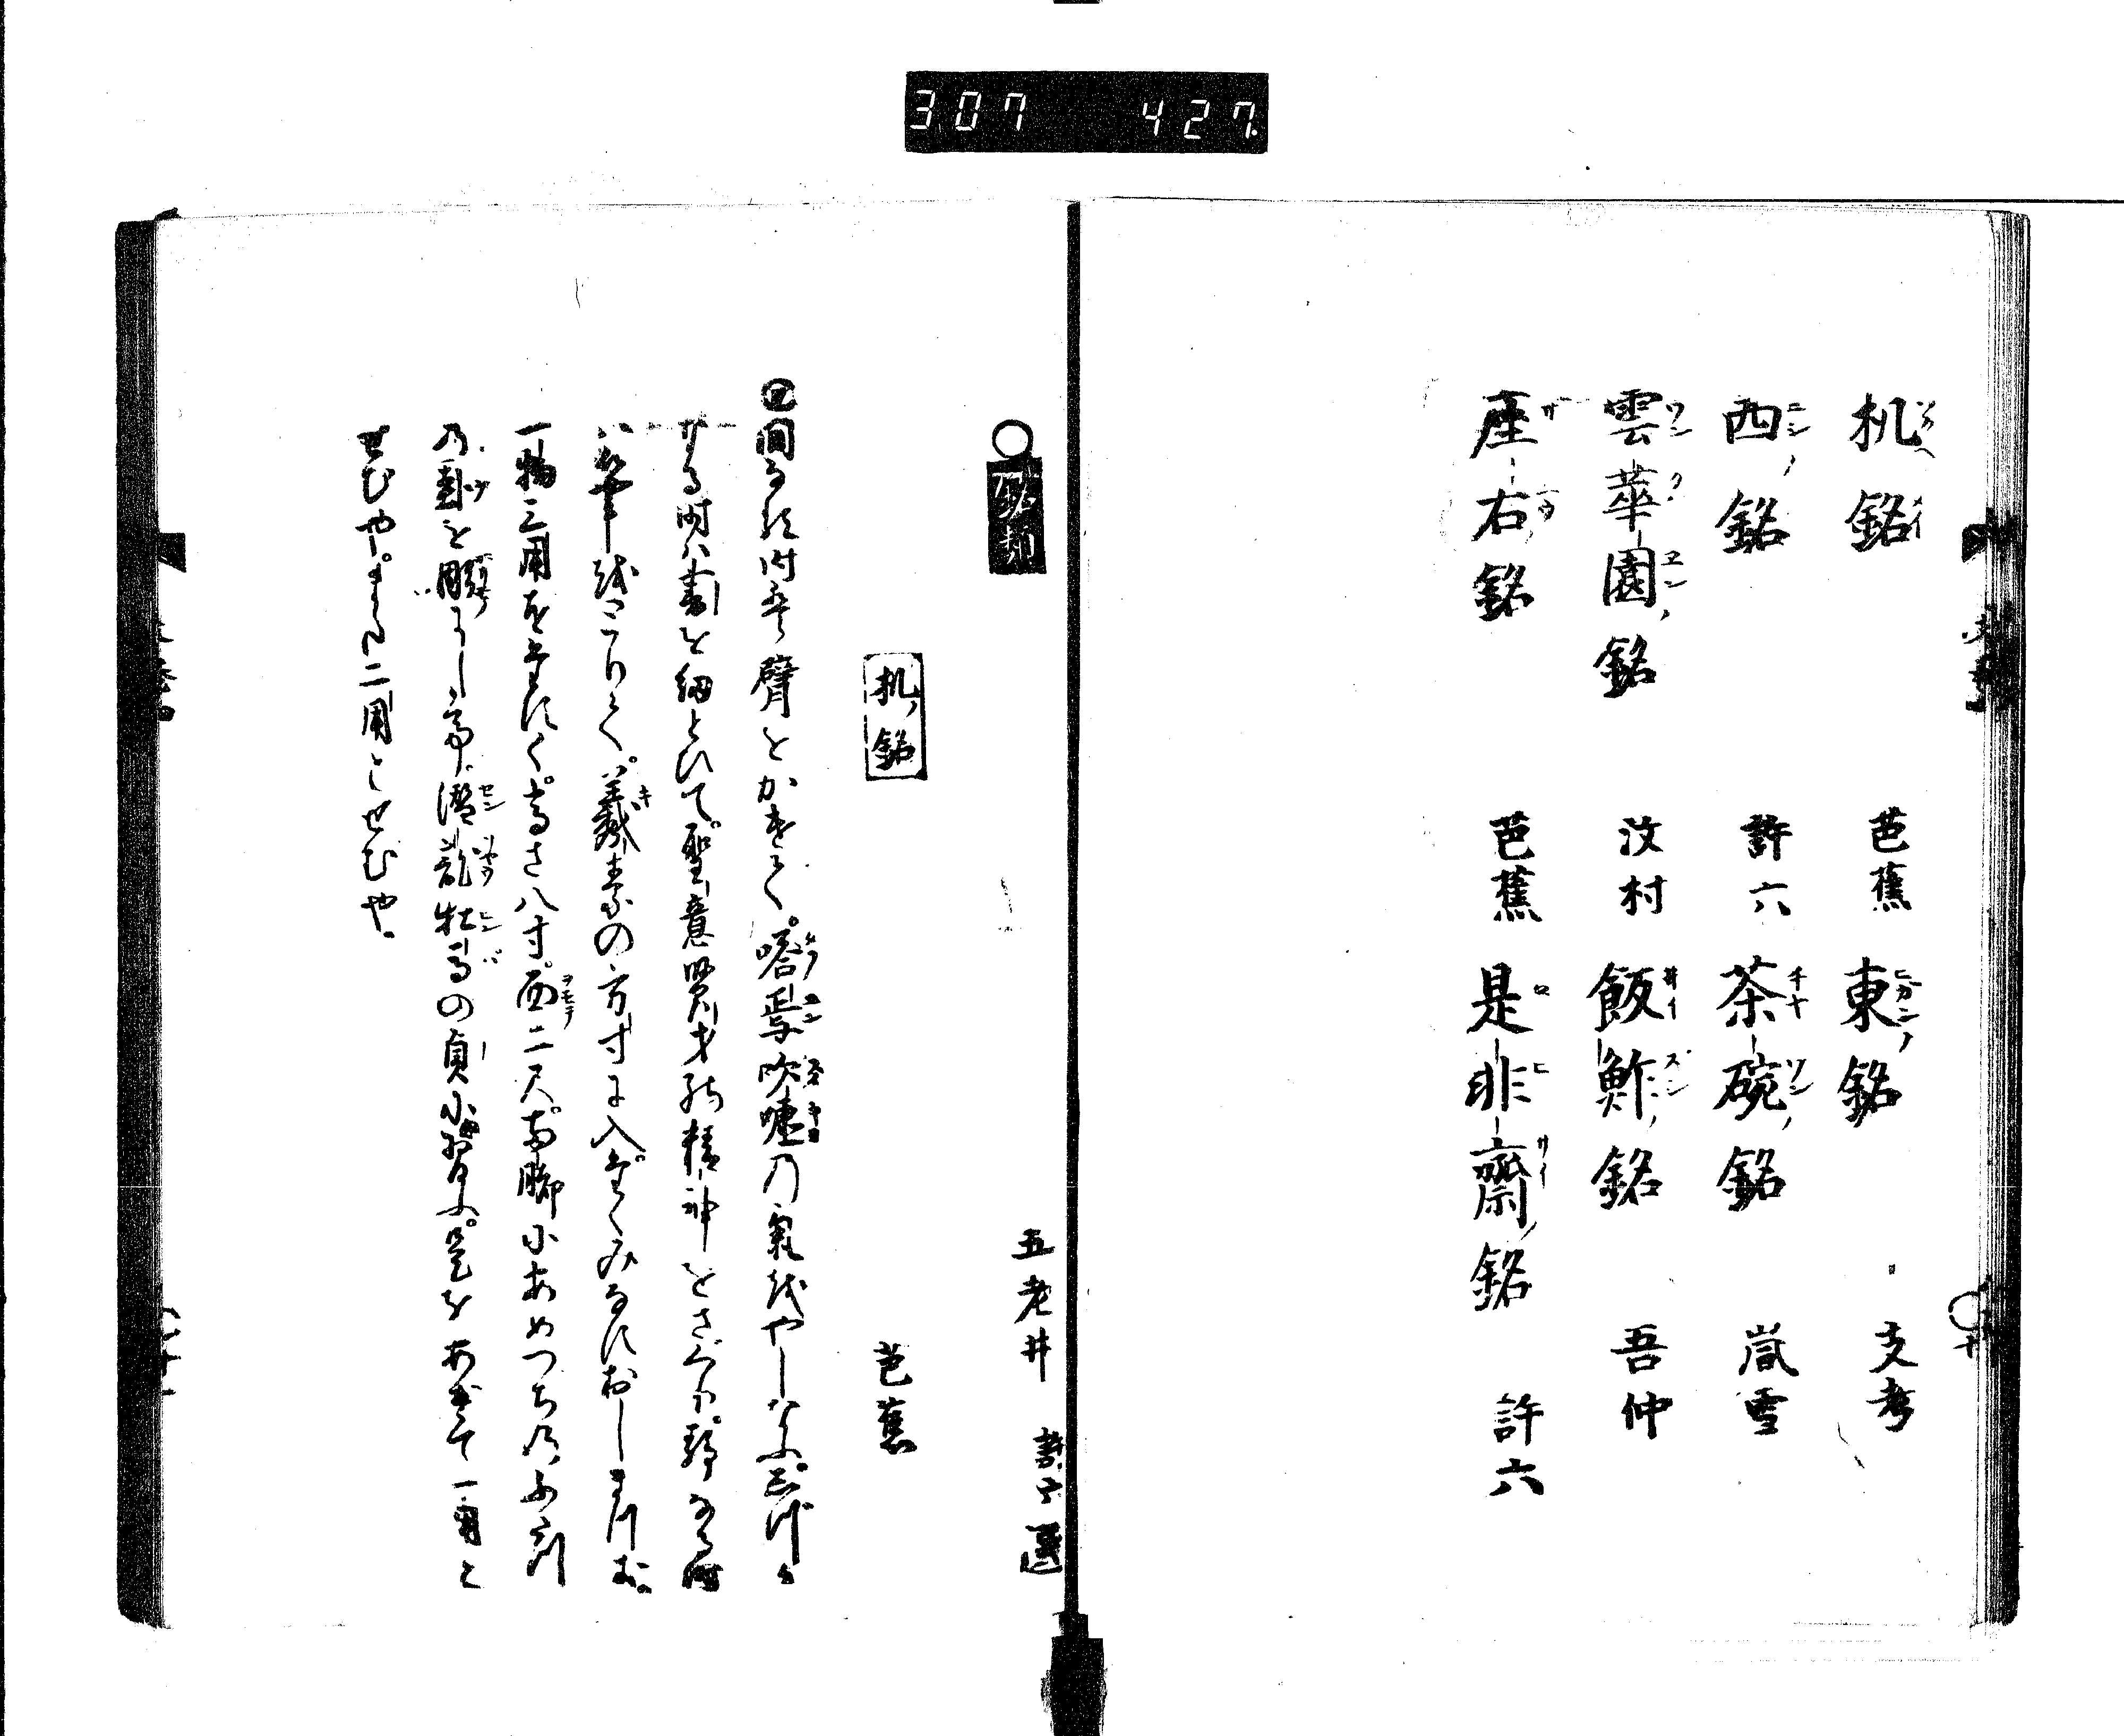 307 427
机銘 芭蕉 東銘 支考
西ノ銘 許六 茶碗ノ銘 嵐雪
雲華園ノ銘 汶村 飯鮓ノ銘 吾仲
座右銘 芭蕉 是非齋ノ銘 許六
銘類
五老井 許六選
机ノ銘
芭蕉
間なる時は臂をかけて。嗒焉吹嘘の氣をやしなふ。しづか
なる時は書を紐といて。聖意賢才の精神をさぐり。静なる時
は筆をとりて。羲素の方寸に入。たくみなすおしまづき。
一物三用をたすく。高さ八寸。面二尺。両脚にあめつちのふたつ
の卦を彫にして。潜龍牝馬の貞に習ふ。是をあげて一用と
せむや。また二用とせむや。